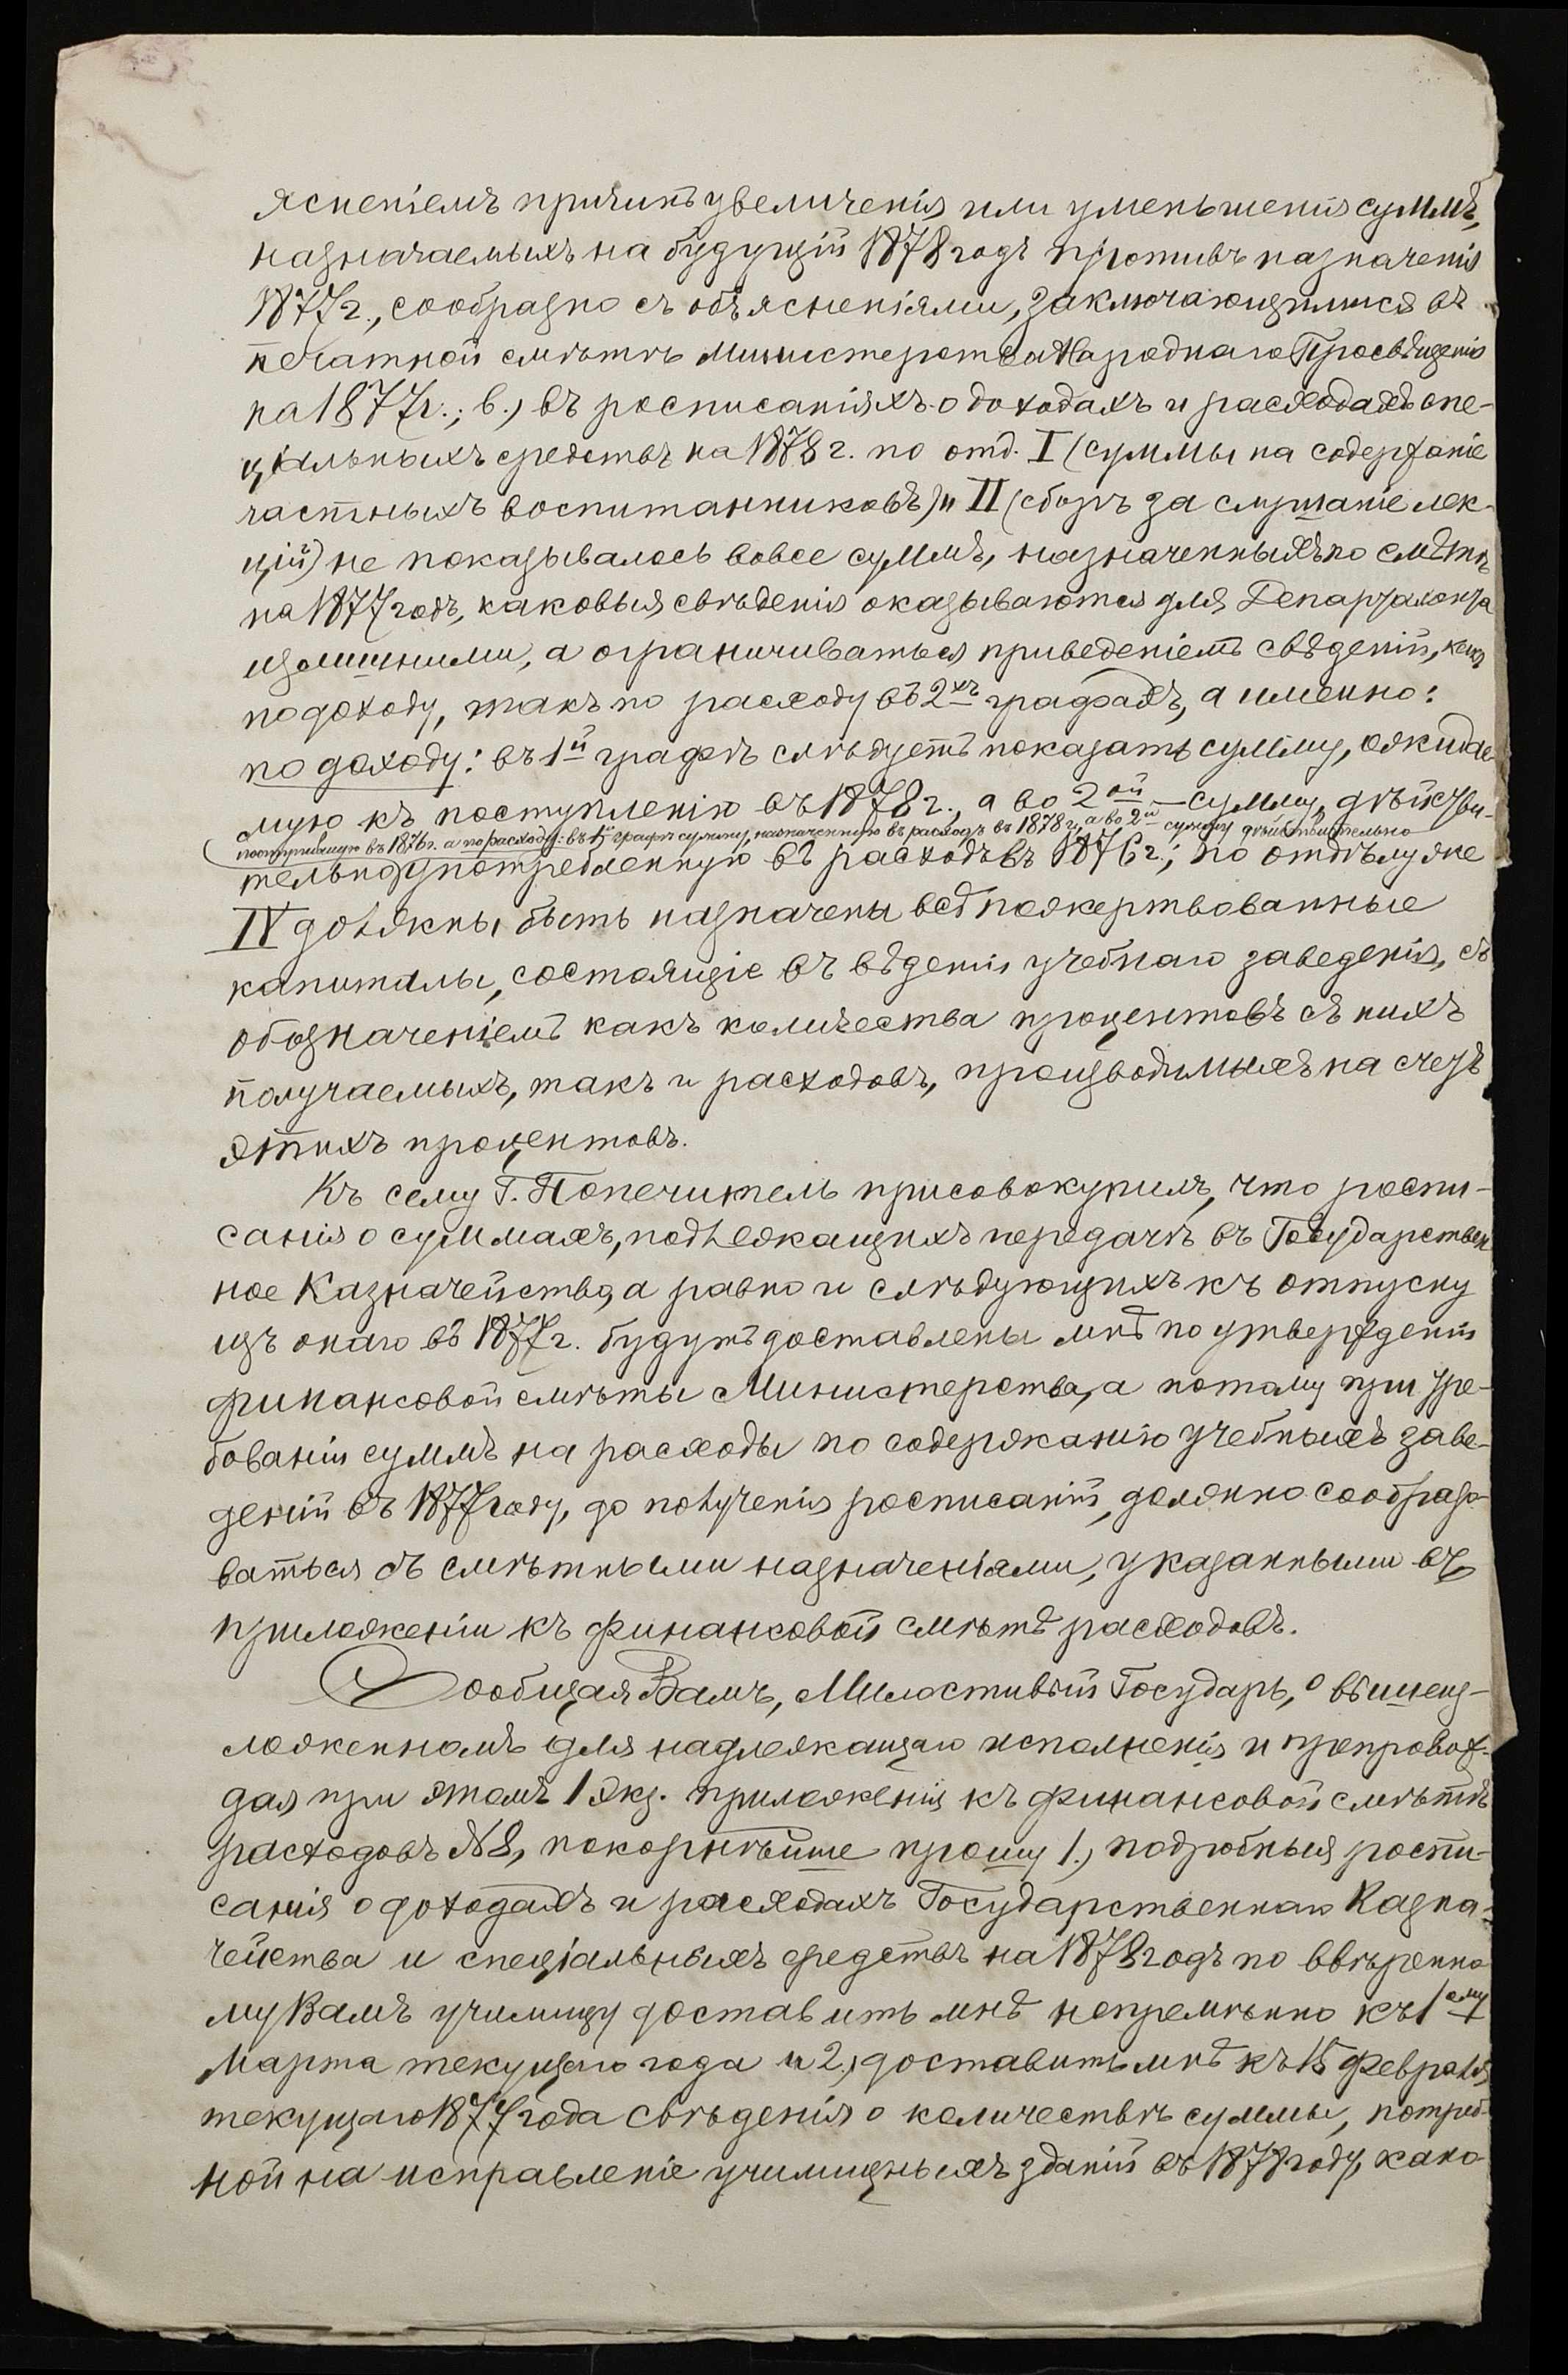 ясненіемъ причинъ увеличенія или уменьшенія суммъ,
назначаемыхъ на будущій 1878 годъ противъ назначенія
1877 г., сообразно съ объясненіями, заключающимися въ
печатной смѣтѣ Министерства Народнаго Просвѣщенія
на 1877 г.; в.) въ росписаніяхъ о доходахъ и расходахъ спе-
ціальныхъ средствъ на 1878 г. по отд. I (суммы на содержаніе
частныхъ воспитанниковъ) и II (сборъ за слушаніе лек-
цій) не показывалось вовсе суммъ, назначенныхъ по смѣтѣ
на 1877 годъ, каковыя свѣденія оказываются для Департамента
излишними, а ограничиваться приведеніемъ свѣденій, какъ
по доходу, такъ по расходу въ 2хъ графахъ, а именно:
по доходу: въ 1й графѣ слѣдуетъ показать сумму, ожидае-
мую къ поступленію въ 1878 г., а во 2ой — сумму, дѣйстви-
поступившую въ 1876 г. а по расходу: въ 1й графѣ сумму, назначенную въ расходъ въ 1878 г., а во 2й сумму дѣйствительно
тельно употребленную въ расходъ въ 1876 г.; по отдѣлу же
IV должны быть назначены всѣ пожертвованные
капиталы, состоящіе въ вѣденіи учебнаго заведенія, съ
обозначеніемъ какъ количества процентовъ съ нихъ
получаемыхъ, такъ и расходовъ, производимыхъ на счетъ
этихъ процентовъ.
Къ сему Г. Попечитель присовокупилъ, что роспи-
санія о суммахъ, подлежащихъ передачѣ въ Государствен
ное Казначейство, а равно и слѣдующихъ къ отпуску
изъ онаго въ 1877 г. будутъ доставлены мнѣ по утвержденіи
финансовой смѣты Министерства, а потому при тре-
бованіи суммъ на расходы по содержанію учебныхъ заве-
деній въ 1877 году, до полученія росписаній, должно сообразо-
ваться съ смѣтными назначеніями, указанными въ
приложеніи къ финансовой смѣтѣ расходовъ.
Сообщая Вамъ, Милостивый Государь, о вышеиз-
ложенномъ для надлежащаго исполненія и препровож-
дая при этомъ 1 экз. приложенія къ финансовой смѣтѣ
расходовъ №8, покорнѣйше прошу 1.) подробныя роспи-
санія о доходахъ и расходахъ Государственнаго Казна-
чейства и спеціальныхъ средствъ на 1878 годъ по ввѣренно
му Вамъ училищу доставить мнѣ непремѣнно къ 1ему
Марта текущаго года и 2.) доставить мнѣ къ 15 Февраля
текущаго 1877 года свѣденія о количествѣ суммы, потреб-
ной на исправленіе училищныхъ зданій въ 1878 году, како-